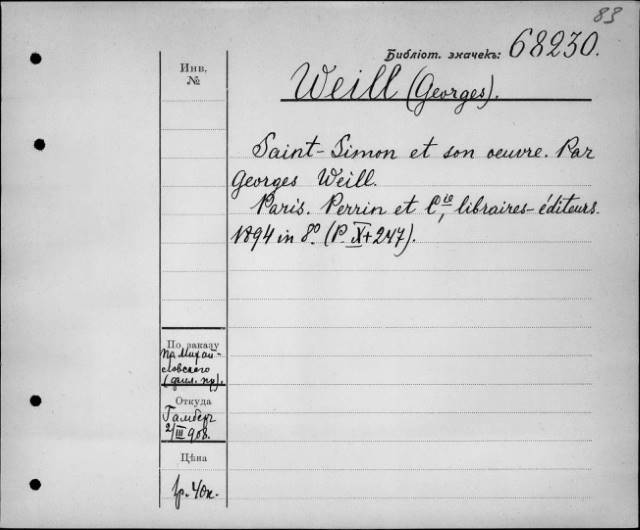 83
Библіот. значекъ: 68230.
Инв.
№
Weill (Georges).
Saint-Simon et son oeuvre. Par
Georges Weill.
Paris. Perrin et Cie, libraires-éditeurs.
1894 in 8º. (P. X+247).
По заказу
пр. Михай-
ловскаго
Откуда
Гамбер
2/III 908.
Цѣна
1р. 40к.